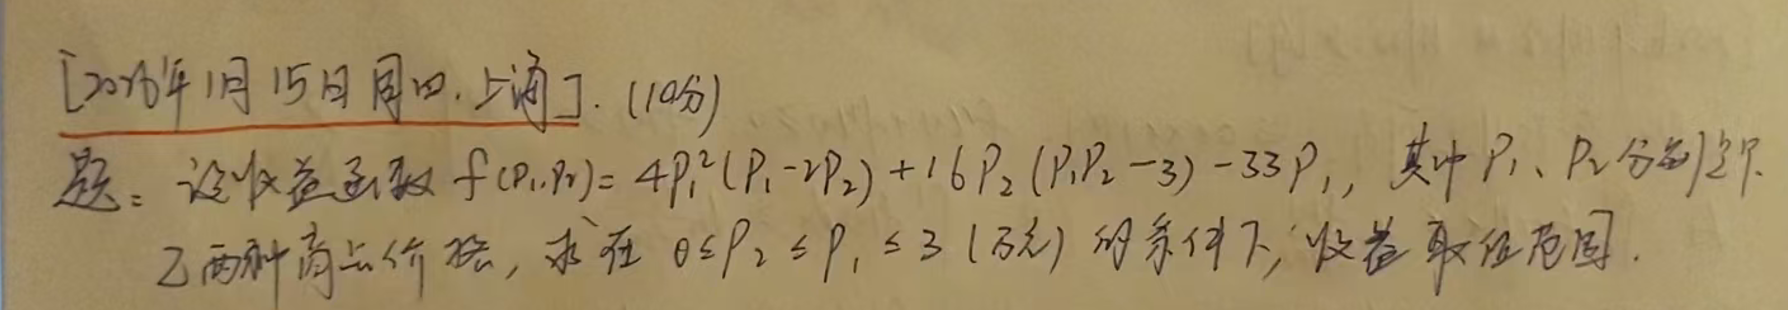 [2026年1月15日 周四.上海].(10分)
题:设收益函数 f(P₁.P₂)=4P₁²(P₁-2P₂)+16P₂(P₁P₂-3)-33P₁, 其中P₁、P₂分别是甲.
乙两种商品价格, 求在 0≤P₂≤P₁≤3(万元)的条件下,收益取值范围.